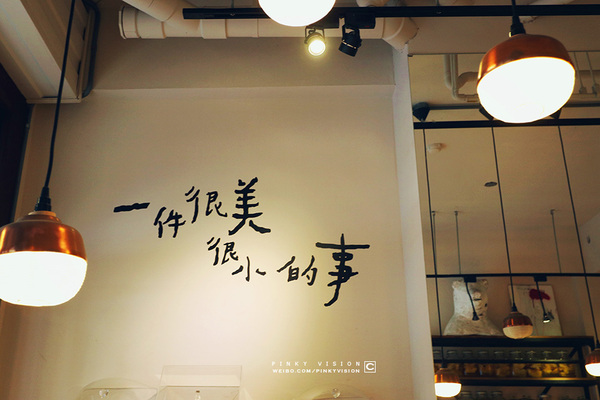 一件很美
很小的事
PINKY VISION C
WEIBO.COM/PINKYVISION